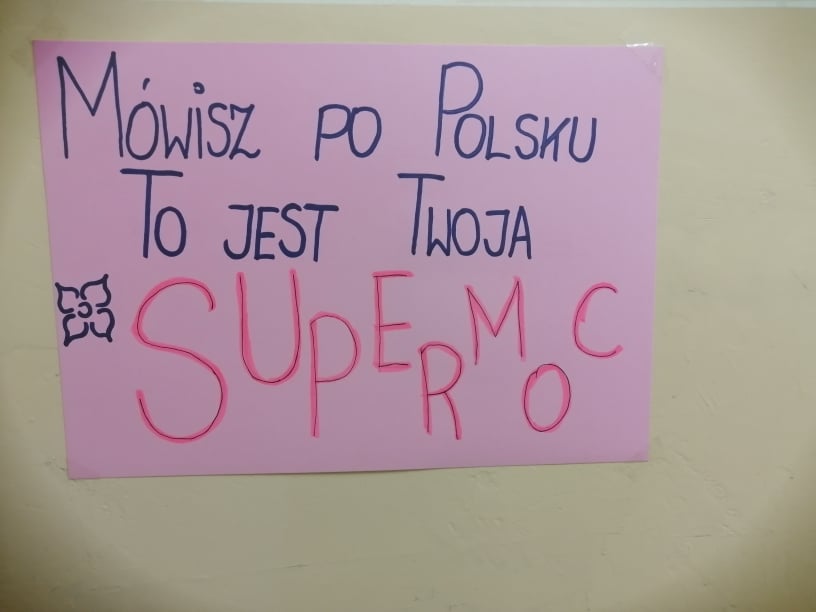 Mówisz po Polsku
To jest Twoja
SUPERMOC